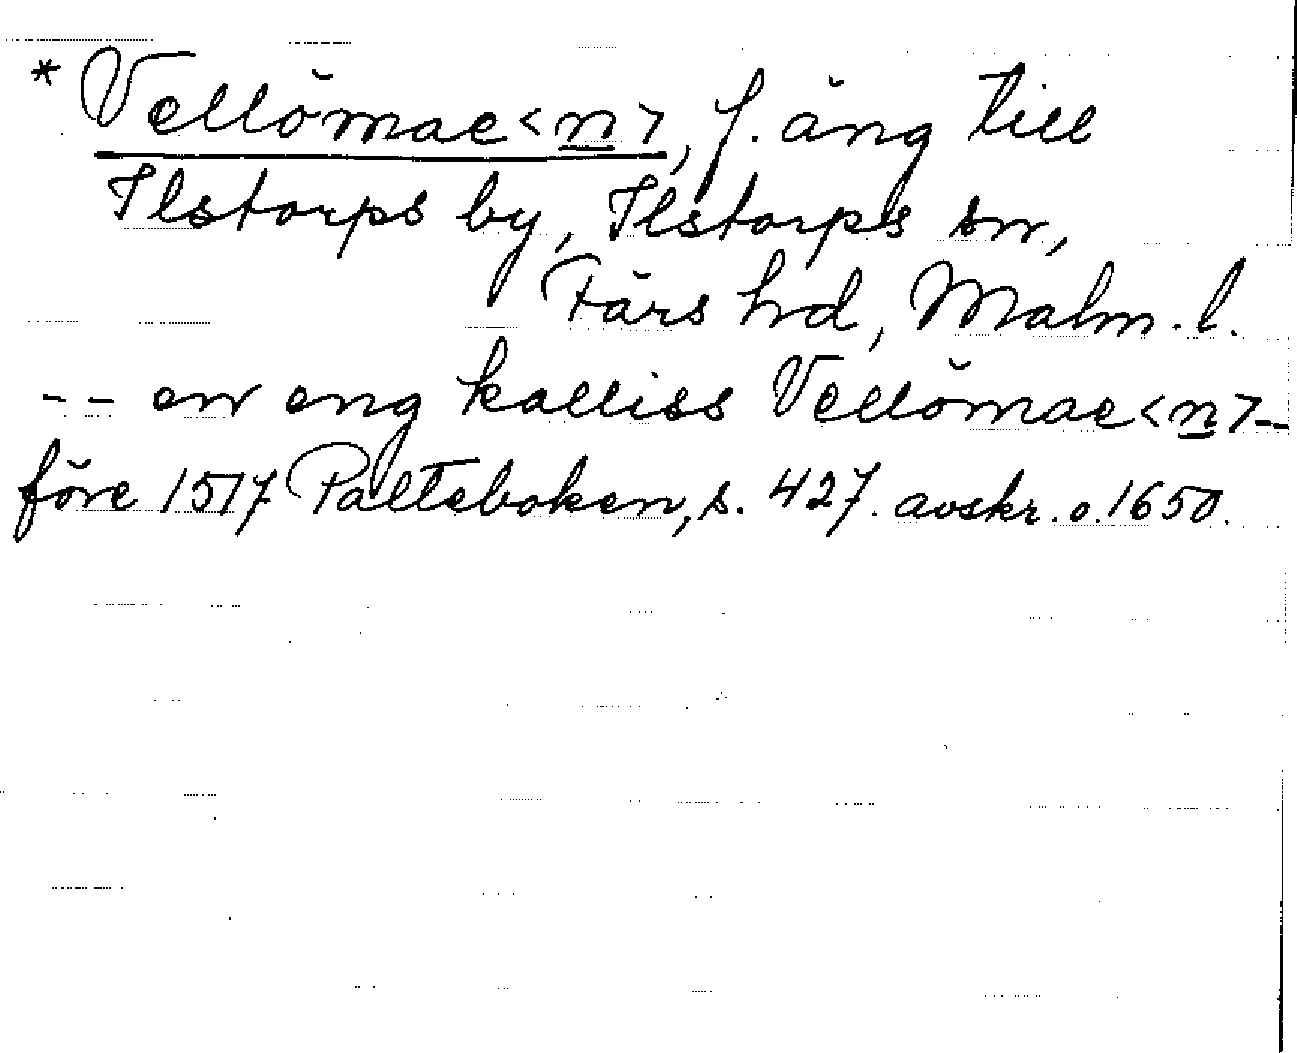 * Vellömae<n>, f. äng till
Ilstorps by, Ilstorps sn,
Färs hd, Malm. l.
-- en eng kalliss Vellömae<n>--
före 1517 Palteboken, s. 427. avskr. o. 1650.